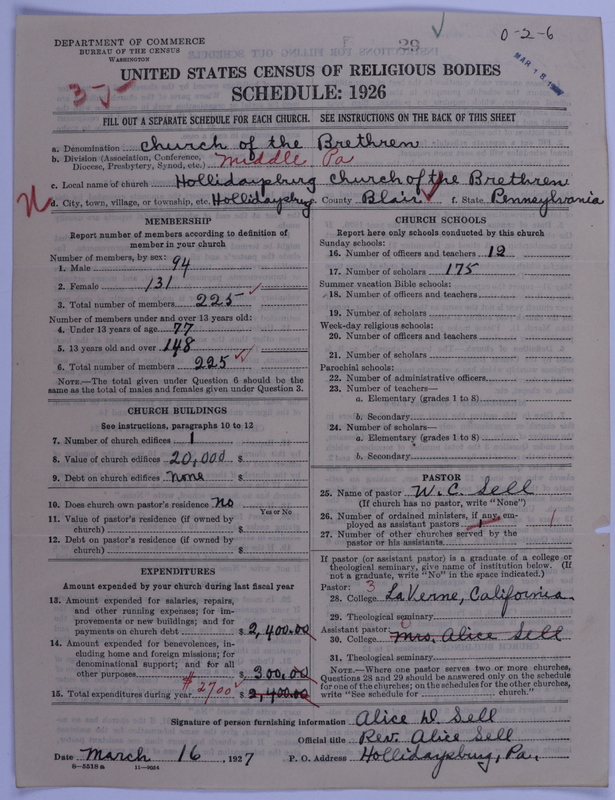 0-2-6
29
MAR 18
DEPARTMENT OF COMMERCE
BUREAU OF THE CENSUS
WASHINGTON
UNITED STATES CENSUS OF RELIGIOUS BODIES
SCHEDULE: 1926
FILL OUT A SEPARATE SCHEDULE FOR EACH CHURCH. SEE INSTRUCTIONS ON THE BACK OF THIS SHEET
a. Denomination Church of the Brethren
b. Division (Association, Conference, Diocese, Presbytery, Synod, etc.) Middle Pa
c. Local name of church Hollidaysburg Church of the Brethren
d. City, town, village, or township, etc. Hollidaysburg. County Blair f. State Pennsylvania
MEMBERSHIP
Report number of members according to definition of
member in your church
Number of members, by sex:
1. Male 94
2. Female 131
3. Total number of members 225
Number of members under and over 13 years old:
4. Under 13 years of age 77
5. 13 years old and over 148
6. Total number of members 225
NOTE.—The total given under Question 6 should be the
same as the total of males and females given under Question 3.
CHURCH BUILDINGS
See instructions, paragraphs 10 to 12
7. Number of church edifices 1
8. Value of church edifices 20,000 $
9. Debt on church edifices none $
10. Does church own pastor's residence? no
Yes or No
11. Value of pastor's residence (if owned by
church) $
12. Debt on pastor's residence (if owned by
church) $
EXPENDITURES
Amount expended by your church during last fiscal year
13. Amount expended for salaries, repairs,
and other running expenses; for im-
provements or new buildings; and for
payments on church debt $ 2,400.00
14. Amount expended for benevolences, in-
cluding home and foreign missions; for
denominational support; and for all
other purposes $ 300.00
$2700
15. Total expenditures during year $ 2,400.00
CHURCH SCHOOLS
Report here only schools conducted by this church
Sunday schools:
16. Number of officers and teachers 12
17. Number of scholars 175
Summer vacation Bible schools:
18. Number of officers and teachers
19. Number of scholars
Week-day religious schools:
20. Number of officers and teachers
21. Number of scholars
Parochial schools:
22. Number of administrative officers
23. Number of teachers—
a. Elementary (grades 1 to 8)
b. Secondary
24. Number of scholars—
a. Elementary (grades 1 to 8)
b. Secondary
PASTOR
25. Name of pastor W. C. Sell
(If church has no pastor, write "None")
26. Number of ordained ministers, if any, em-
ployed as assistant pastors 1 1
27. Number of other churches served by the
pastor or his assistants
If pastor (or assistant pastor) is a graduate of a college or
theological seminary, give name of institution below. (If
not a graduate, write "No" in the space indicated.)
Pastor: 3
28. College LaVerne, California.
29. Theological seminary
Assistant pastor: 0
30. College Mrs. Alice Sell
31. Theological seminary
NOTE.—Where one pastor serves two or more churches,
Questions 28 and 29 should be answered only on the schedule
for one of the churches; on the schedules for the other churches,
write "See schedule for church."
Signature of person furnishing information Alice D. Sell
Official title Rev. Alice Sell
Date March 16, 1927 P. O. Address Hollidaysburg, Pa.
8-5518a 11-9024